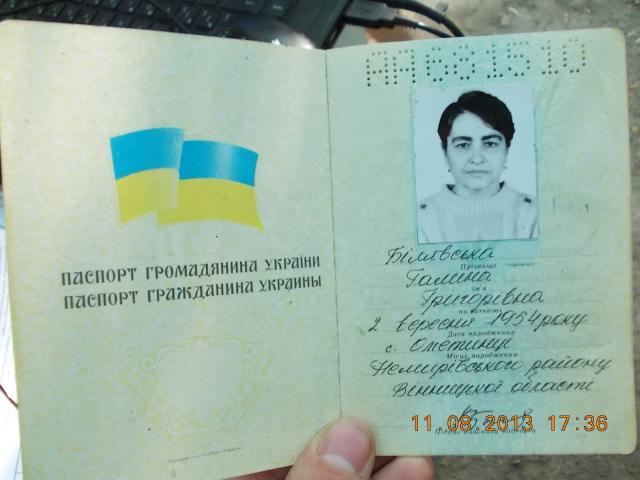 ПАСПОРТ ГРОМАДЯНИНА УКРАЇНИ
ПАСПОРТ ГРАЖДАНИНА УКРАИНЫ
АН681510
Білявська
Прізвище
Галина
Ім'я
Григорівна
По батькові
2 вересня 1954 року
Дата народження
с. Ометинці
Місце народження
Немирівського району
Вінницької області
11 08 2013 17:36